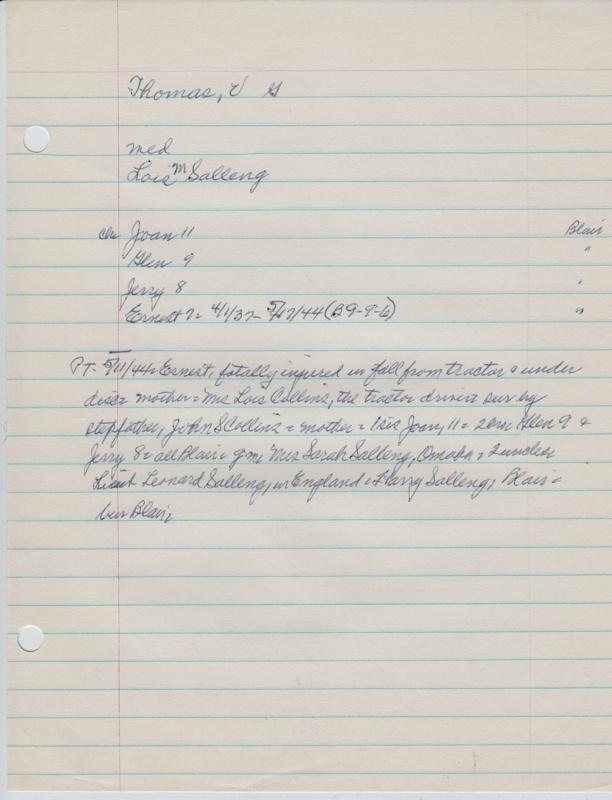 Thomas, V G
med
Lois M Salleng
ch Joan 11 Blair
Glen 9 "
Jerry 8 "
Ernest 7 = 4/1/37 - 5/17/44 (B9-9-6) "
PT - 5/11/44 = Ernest, fatally injured in fall from tractor & under
disc = mother = Mrs Lois Collins, the tractor driver = sur by
stepfather, John S Collins = mother = 1 sis Joan, 11 = 2 bro Glen 9 &
Jerry 8 = all Blair = gm Mrs Sarah Salleng, Omaha = 2 uncles
Lieut Leonard Salleng, in England = Harry Salleng, Blair =
bur Blair =